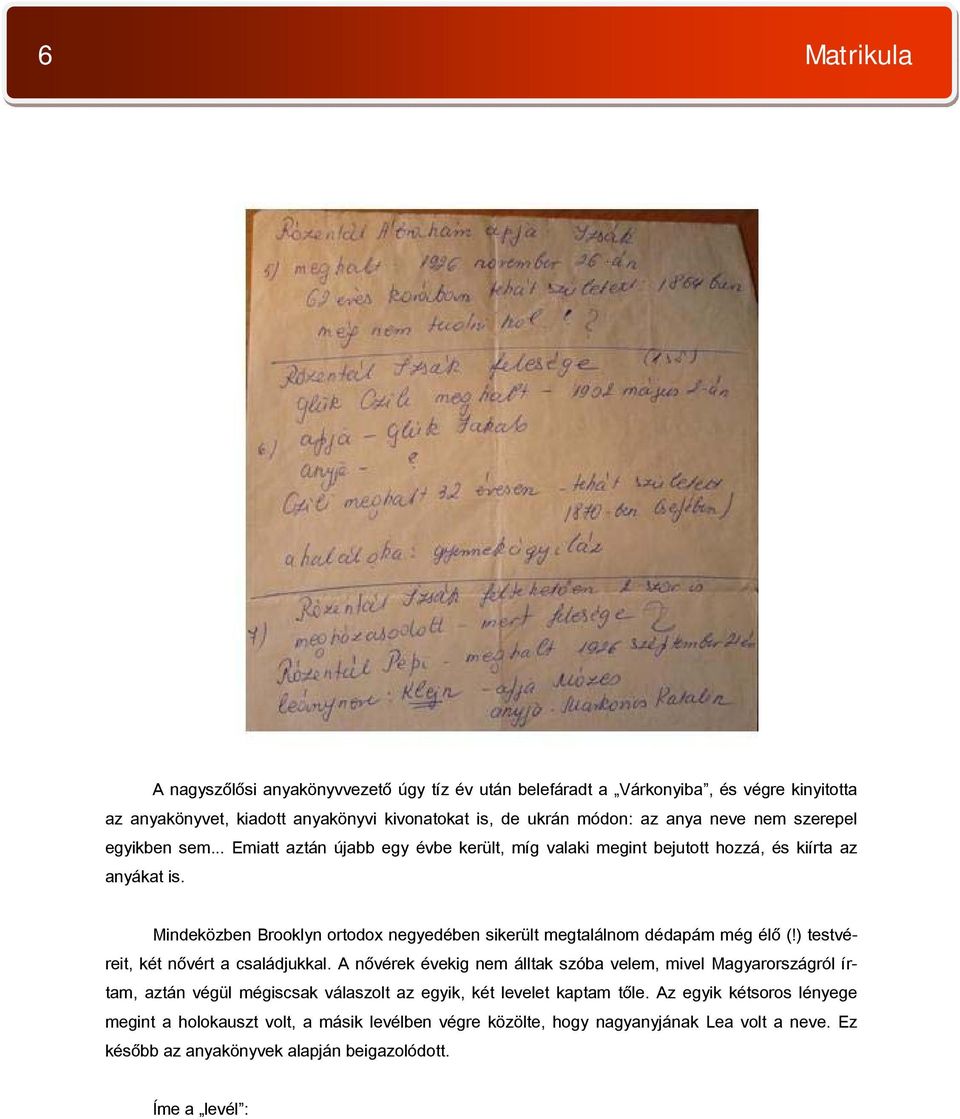 6 Matrikula
Rózentál Ábrahám apja: Izsák
5) meghalt: 1926 november 26-án
62 éves korában tehát született: 1864 ban
még nem tudni hol. ! ?
Rózentál Izsák felesége
Glük Czili meghalt - 1902 május 2-án
6.) apja - Glük Jakab
anyja - ?
Czili meghalt 32 évesen - tehát született
1870-ben Csepében)
a halál oka: gyermekágyi láz
Rózentál Izsák feltehetően 2 szer is
7) megházasodott - mert felesége
Rózentál Pepi - meghalt 1926 szeptember 21 én
leányneve: Klejn - apja Mózes
anyja - Markovis Katalin
A nagyszőlősi anyakönyvvezető úgy tíz év után belefáradt a „Várkonyiba”, és végre kinyitotta
az anyakönyvet, kiadott anyakönyvi kivonatokat is, de ukrán módon: az anya neve nem szerepel
egyikben sem... Emiatt aztán újabb egy évbe került, míg valaki megint bejutott hozzá, és kiírta az
anyákat is.
Mindeközben Brooklyn ortodox negyedében sikerült megtalálnom dédapám még élő (!) testvé-
reit, két nővért a családjukkal. A nővérek évekig nem álltak szóba velem, mivel Magyarországról ír-
tam, aztán végül mégiscsak válaszolt az egyik, két levelet kaptam tőle. Az egyik kétsoros lényege
megint a holokauszt volt, a másik levélben végre közölte, hogy nagyanyjának Lea volt a neve. Ez
később az anyakönyvek alapján beigazolódott.
Íme a „levél”: